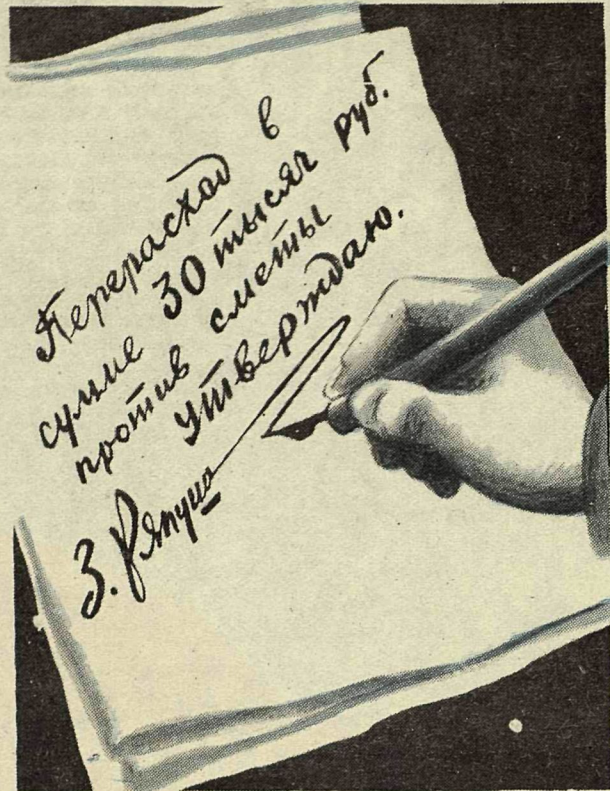 Перерасход в
сумме 30 тысяч руб.
против сметы
утверждаю.
З. Ряпуша